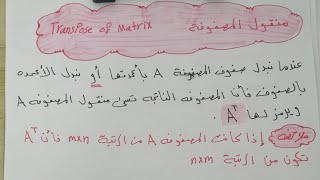 منقول المصفوفة Transpose of Matrix
عندما نبدل صفوف المصفوفة A بأعمدتها أو نبدل الأعمدة
بالصفوف فأن المصفوفة الناتجة تسمى منقول المصفوفة A
ويرمز لها Aᵀ.
ملاحظة إذا كانت المصفوفة A من الرتبة m×n فأن Aᵀ
تكون من الرتبة n×m